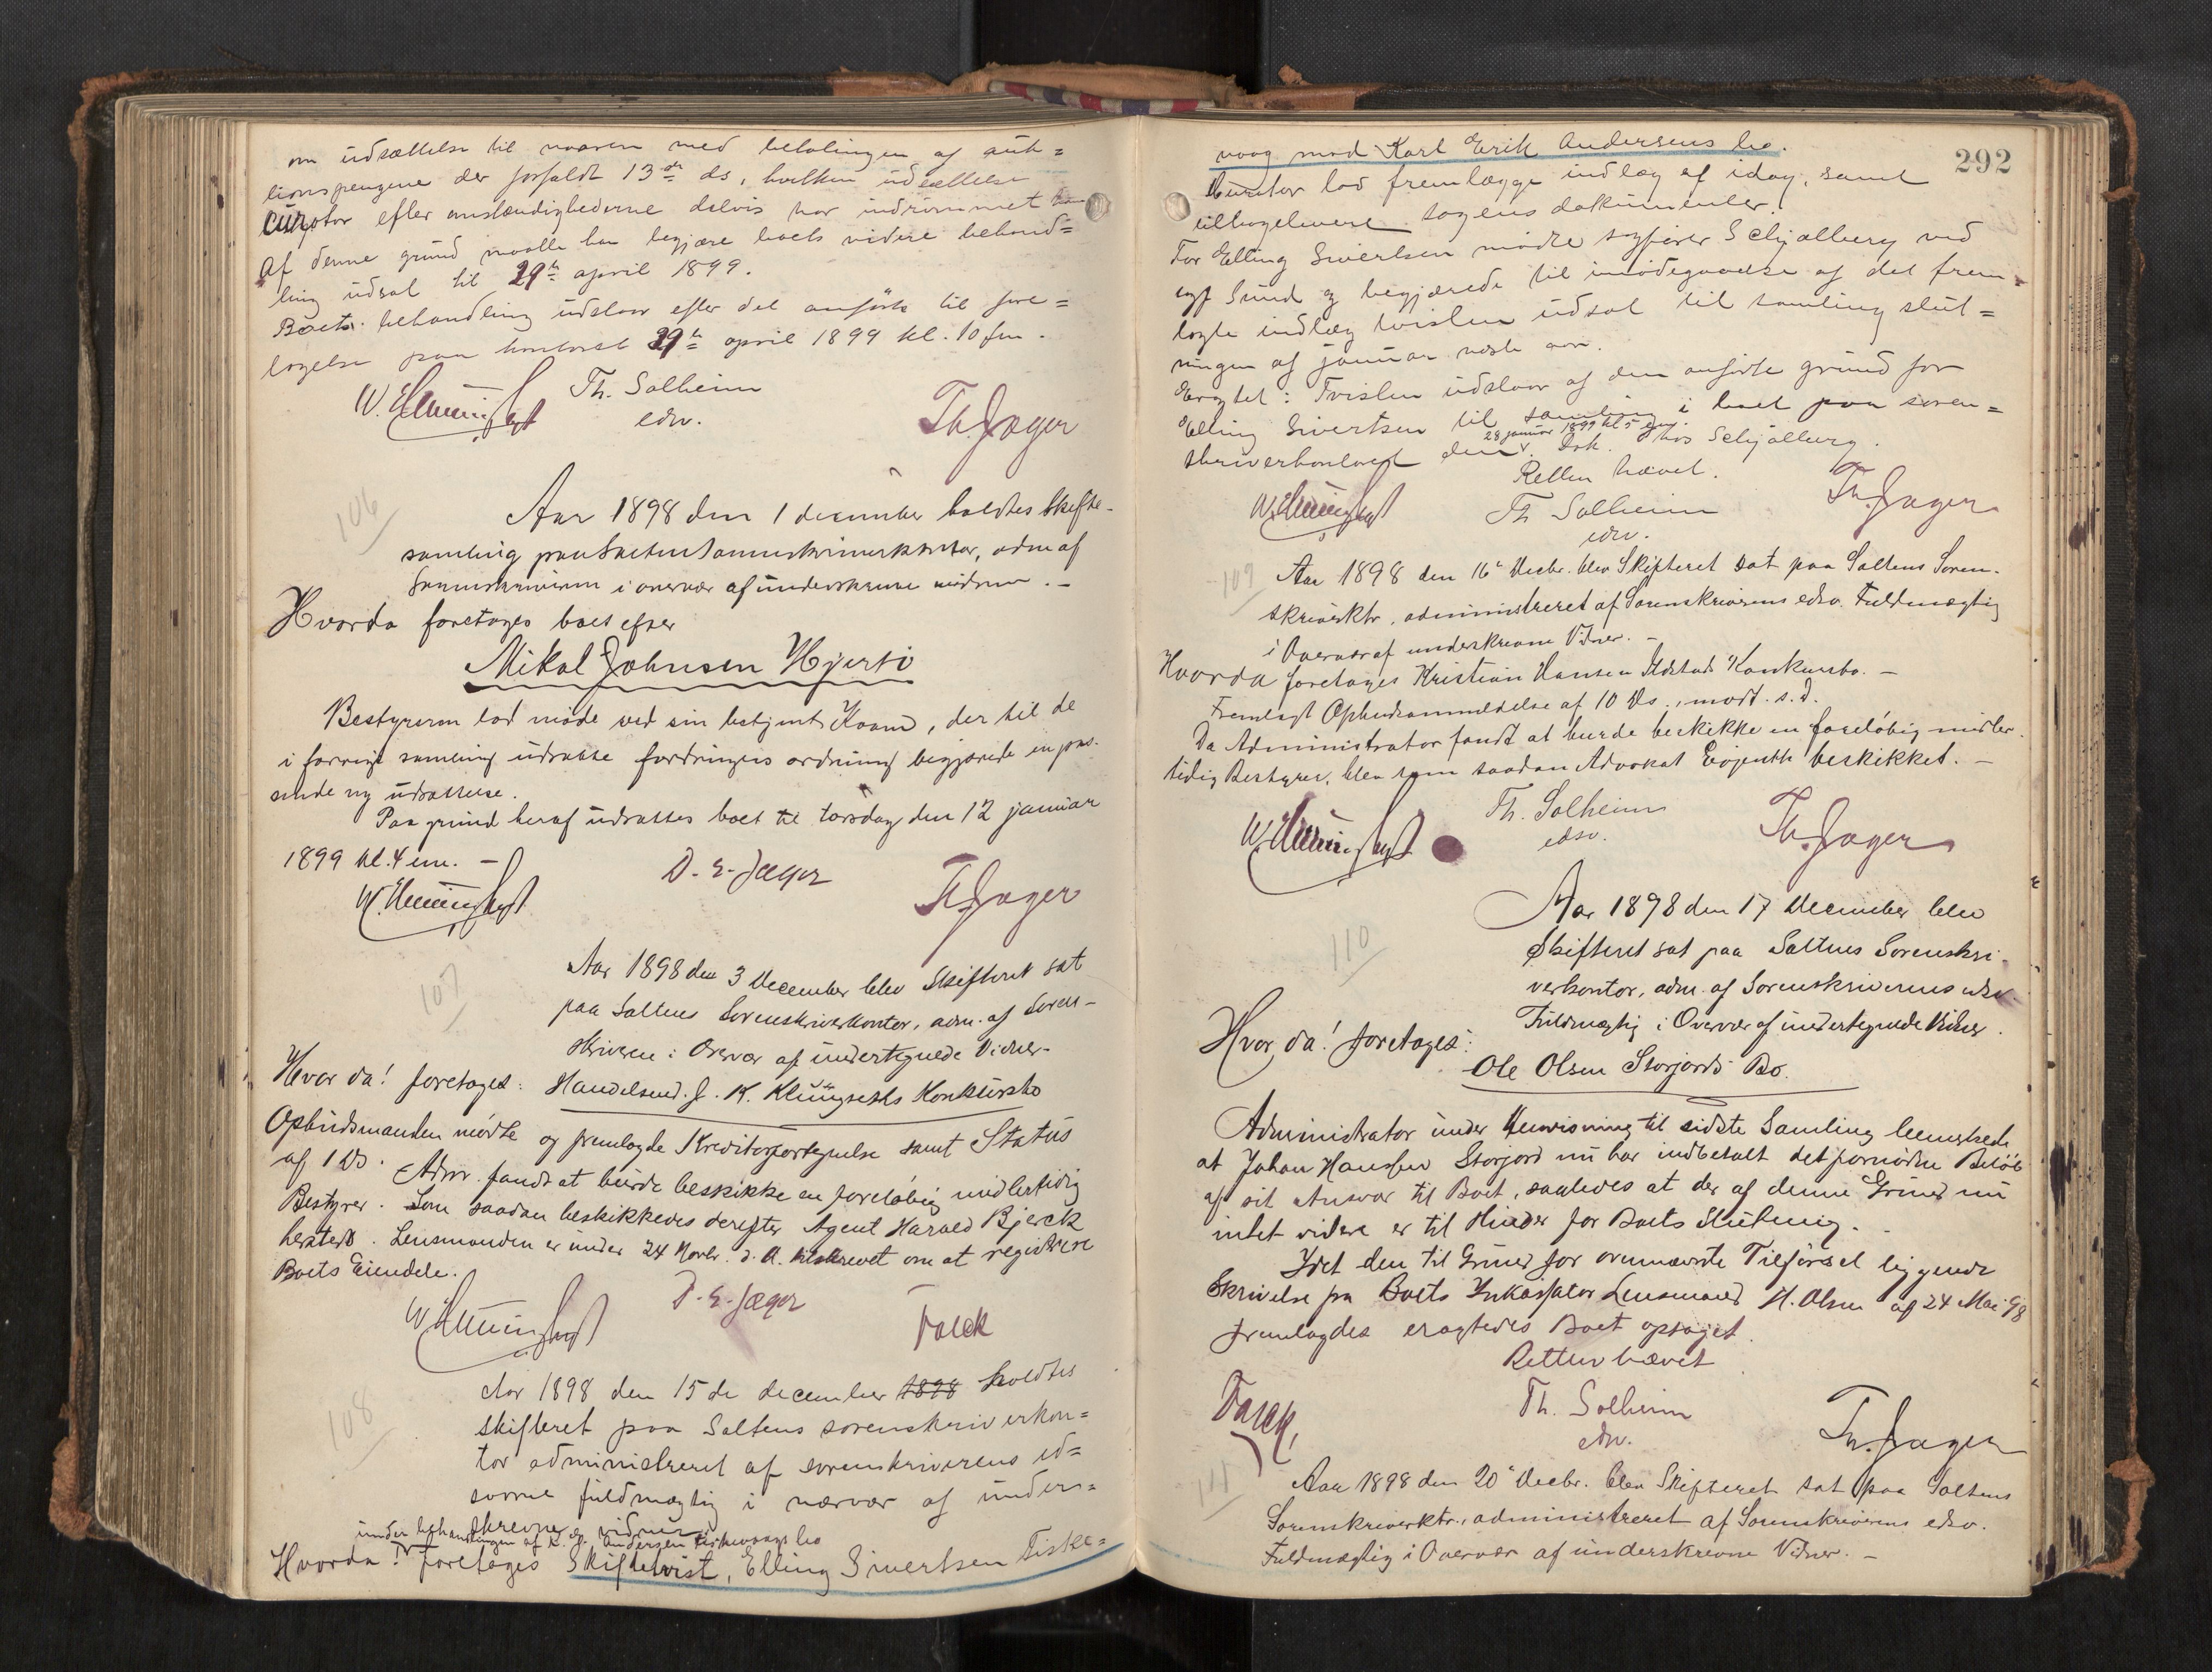 om udsættelse til vaaren med betalingen af auk=
tionspengene der forfaldt 13de ds, hvilken udsættelse
curator efter omstændighederne delvis har indrømmet
Af denne grund maatte han begjære boets videre behand=
ling udsat til 29de april 1899.
Boets behandling udstaar efter det anførte til fore=
tagelse paa kontoret 29de april 1899 kl. 10 fm.
Th. Solheim
edsv.
Th. Jager
106
Aar 1898 den 1 december holdtes Skifte-
samling paa Saltens sorenskriverkontor, adm af
Sorenskriveren i overvær af underskrevne vidner. -
Hvorda foretages boet efter
Mikal Johnsen Hjertø
Bestyreren lod møde ved sin betjent Kvam, der til de
i forrige samling udsatte fordringers ordning begjærede en pas-
sende ny udsættelse.
Paa grund heraf udsattes boet til torsdag den 12 januar
1899 kl. 4 em. -
D. E. Jæger
Th. Jager
107
Aar 1898 den 3 December blev Skifteret sat
paa Saltens Sorenskriverkontor, adm. af Soren-
skriveren i Overvær af undertegnede Vidner-
Hvor da! foretages: Handelsmd. J. K. Klüngseths Konkursbo
Opbudsmanden mødte og fremlagde Kreditorfortegnelse samt Status
af 1 ds. Adm. fandt at burde beskikke en foreløbig midlertidig
Bestyrer. Som saadan beskikkedes derefter Agent Harald Bjerck
hersteds. Lensmanden er under 24 Novbr. d. A. tilskrevet om at registrere
Boets Eiendele.
D. E. Jæger
Falck
108
Aar 1898 den 15de december 1898 holdtes
skifteret paa Saltens sorenskriverkon=
tor administreret af sorenskriverens ed=
svorne fuldmægtig i nærvær af unders=
skrevne vidner
under behandlingen af K. E. Andersen Fiskevaags bo
Hvorda! foretages Skiftetvist, Elling Sivertsen Fiske=
292
vaag mod Karl Erik Andersens bo.
Curator lod fremlægge indlæg af idag, samt
tilbagelevere sagens dokumenter.
For Elling Sivertsen mødte sagfører Schjølberg ved
sgf Sund og begjærede til imødegaaelse af det frem
lagte indlæg tvisten udsat til samling slut=
ningen af januar næste aar.
Eragtet: Tvisten udstaar af den anførte grund for
Elling Sivertsen til samling i boet paa soren=
28 januar 1899 kl 5 em.
skriverkontoret den. Dok. hos Schjølberg.
Retten hævet.
Th Solheim
edsv.
Th. Jager
109
Aar 1898 den 16de Decbr. blev Skifteret sat paa Saltens Soren-
skriverktr, administreret af Sorenskriverens edsv. Fuldmægtig
i Overvær af underskrevne Vidner. -
Hvorda foretages Kristian Hansen Ildstads Konkursbo. -
Fremlagt Opbudsanmeldelse af 10 ds., modt. s. d.
Da Administrator fandt at burde beskikke en foreløbig midler-
tidig Bestyrer, blev som saadan Advokat Evjenth beskikket. -
Th. Solheim
edsv.
Th. Jager
110
Aar 1898 den 17 December blev
Skifteret sat paa Saltens Sorenskri-
verkontor, adm. af Sorenskriverens edsv.
Fuldmægtig i Overvær af undertegnede Vidner.
Hvor da! foretages:
Ole Olsen Storjords Bo.
Administrator under Henvisning til sidste Samling bemerkede
at Johan Hansen Storjord nu har indbetalt det fornødne Beløb
af sit Ansvar til Boet, saaledes at der af denne Grund nu
intet videre er til Hinder for Boets Slutning.
Idet den til Grund for ovennævnte Tilførsel liggende
Skrivelse fra Boets Inkassator Lensmand H. Olsen af 24 Mai 98
fremlagdes eragtedes Boet optaget.
Retten hævet
Falck,
Th. Solheim
edsv.
Th. Jager
111
Aar 1898 den 20de Decbr. blev Skifteret sat paa Saltens
Sorenskriverktr., administreret af Sorenskriverens edsv.
Fuldmægtig i Overvær af underskrevne Vidner. -